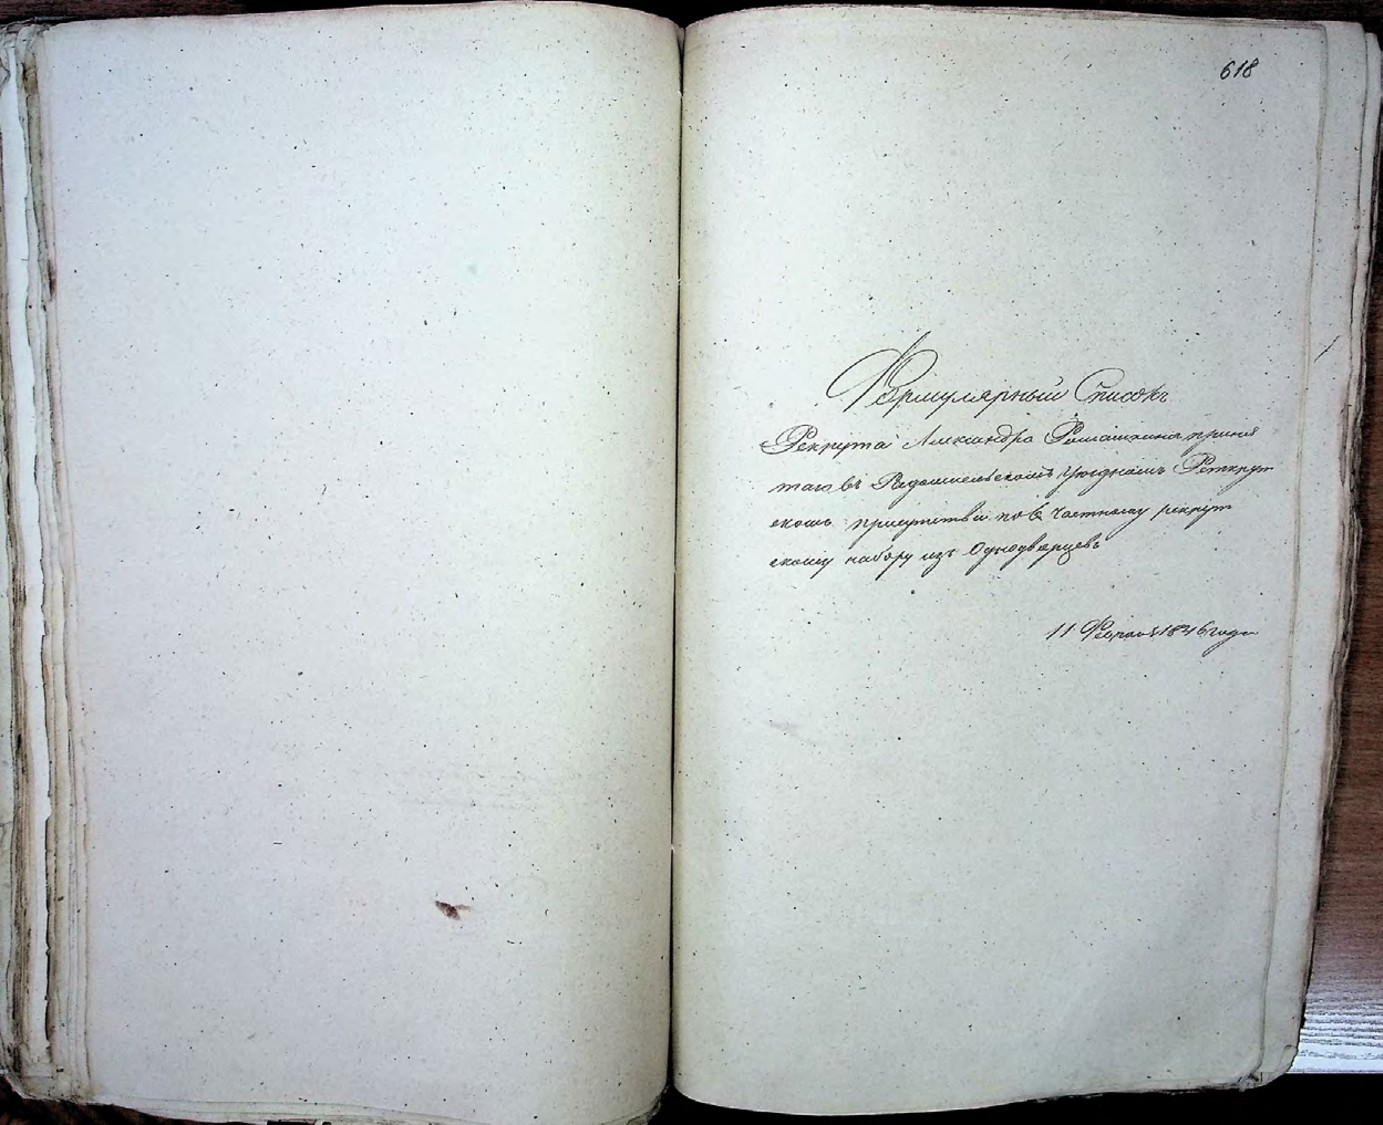 618
Формулярный Списокъ
Рекрута Александра Ромашкина приня
таго въ Уѣздномъ Рекрут
скомъ присутствіи по 6 частному рекрут
скому набору изъ Однодворцевъ
11 1846 года